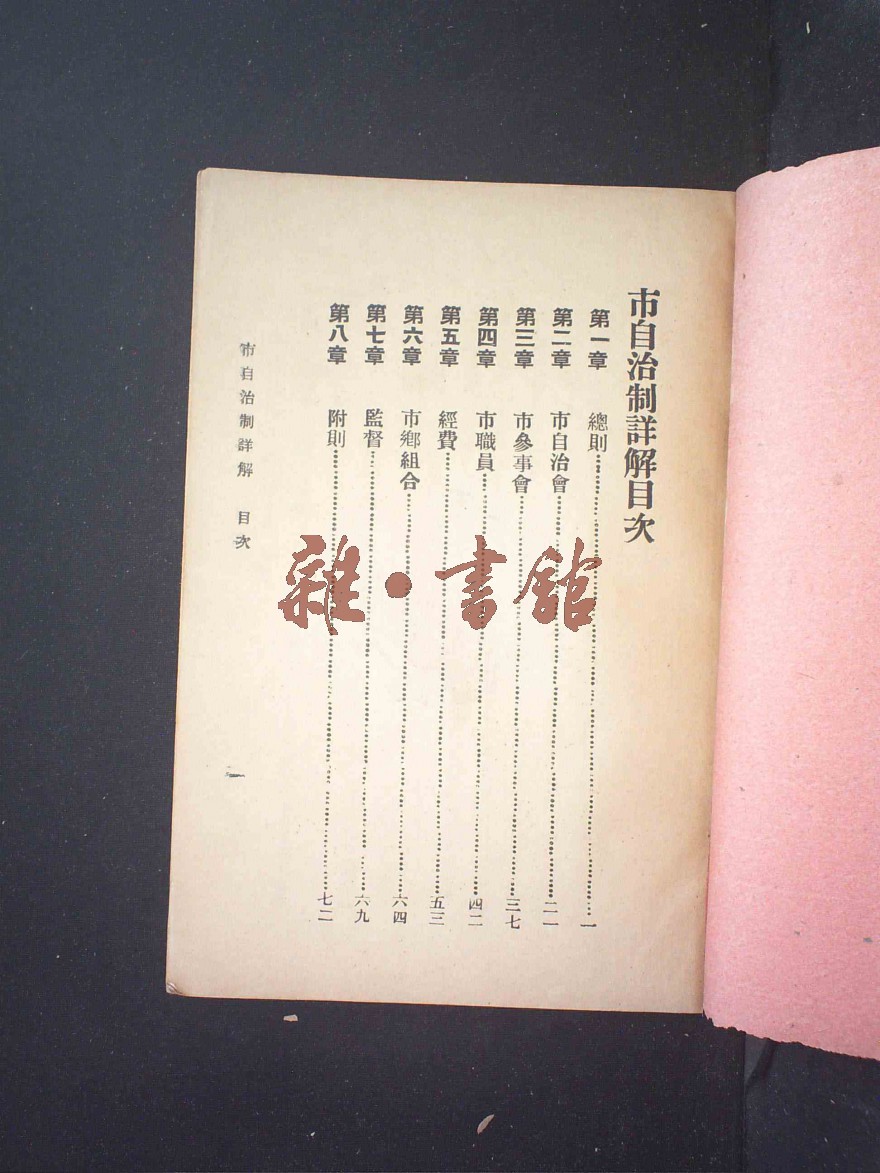 市自治制詳解目次
第一章 總則…………一
第二章 市自治會…………二一
第三章 市參事會…………三七
第四章 市職員…………四二
第五章 經費…………五三
第六章 市鄉組合…………六四
第七章 監督…………六九
第八章 附則…………七二
市自治制詳解 目次
一
雜·書館